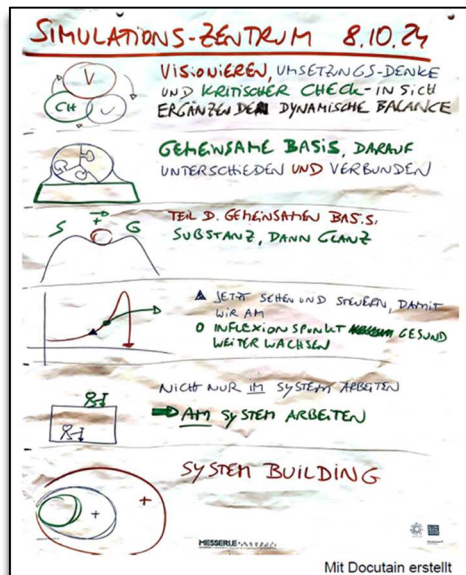 SIMULATIONS-ZENTRUM 8.10.24
V
CH
U
VISIONIEREN, UMSETZUNGS-DENKE
UND KRITISCHER CHECK - IN SICH
ERGÄNZENDER DYNAMISCHE BALANCE
GEMEINSAME BASIS, DARAUF
UNTERSCHIEDEN UND VERBUNDEN
S G
TEIL D. GEMEINSAMEN BASIS:
SUBSTANZ, DANN GLANZ
JETZT SEHEN UND STEUERN, DAMIT
WIR AM
INFLEXIONSPUNKT GESUND
WEITER WACHSEN
NICHT NUR IM SYSTEM ARBEITEN
AM SYSTEM ARBEITEN
SYSTEM BUILDING
+ +
MESSERLE
Mit Docutain erstellt